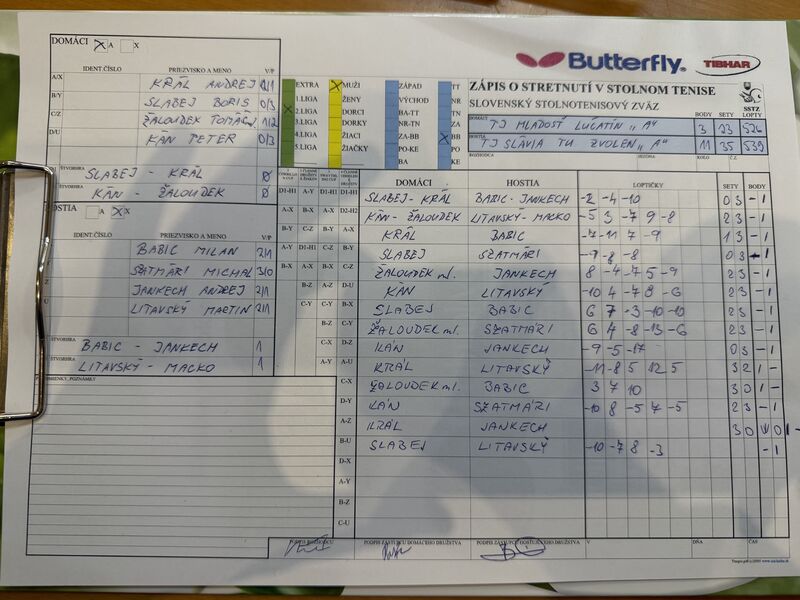 DOMÁCI X A X
IDENT.ČÍSLO PRIEZVISKO A MENO V/P
A/X KRÁL ANDREJ
B/Y SLABEJ BORIS 0/3
C/Z ŽALOUDEK TOMÁŠ 1/2
D/U KÁN PETER 0/3
ŠTVORHRA SLABEJ - KRÁL 0
ŠTVORHRA KÁN - ŽALOUDEK 0
HOSTIA A X X
IDENT.ČÍSLO PRIEZVISKO A MENO V/P
BABIC MILAN 2/1
SZATMÁRI MICHAL 3/0
JANKECH ANDREJ 2/1
LITAVSKÝ MARTIN 2/1
ŠTVORHRA BABIC - JANKECH 1
ŠTVORHRA LITAVSKÝ - MACKO 1
Butterfly. TIBHAR
EXTRA X MUŽI ZÁPAD TT
1.LIGA ŽENY VÝCHOD NR
X 2.LIGA DORCI BA-TT TN
3.LIGA DORKY NR-TN ZA
4.LIGA ŽIACI ZA-BB X BB
5.LIGA ŽIAČKY PO-KE PO
BA KE
ZÁPIS O STRETNUTÍ V STOLNOM TENISE
SLOVENSKÝ STOLNOTENISOVÝ ZVÄZ SSTZ
BODY SETY LOPTY
DOMÁCI TJ MLADOSŤ LÚČATÍN „A" 3 23 526
HOSTIA TJ SLÁVIA TU ZVOLEN „A" 11 35 539
DOMÁCI HOSTIA LOPTIČKY SETY BODY
D1-H1 A-Y D1-H1 D1-H1 SLABEJ - KRÁL BABIC - JANKECH -2 -4 -10 0 3 - 1
A-X B-X A-X D2-H2 KÁN - ŽALOUDEK LITAVSKÝ - MACKO -5 3 -7 9 -8 2 3 - 1
B-Y C-Z B-Y A-X KRÁL BABIC -7 -11 7 -9 1 3 - 1
A-Y D1-H1 C-Z B-Y SLABEJ SZATMÁRI -9 -8 -8 0 3 - 1
B-X A-X B-X C-Z ŽALOUDEK ml. JANKECH 8 -4 -7 5 -9 2 3 - 1
B-Z A-Z D-U KÁN LITAVSKÝ -10 4 -7 8 -6 2 3 - 1
C-Y C-Y B-X SLABEJ BABIC 6 7 -3 -10 -10 2 3 - 1
B-Z C-Y ŽALOUDEK ml. SZATMÁRI 6 4 -8 -13 -6 2 3 - 1
C-X D-Z KÁN JANKECH -9 -5 -17 0 3 - 1
A-Y A-U KRÁL LITAVSKÝ -11 -8 5 12 5 3 2 1 -
C-X ŽALOUDEK ml. BABIC 3 7 10 3 0 1 -
D-Y KÁN SZATMÁRI -10 8 -5 7 -5 2 3 - 1
A-Z KRÁL JANKECH 3 0
B-U SLABEJ LITAVSKÝ -10 -7 8 -3 - 1
D-X
A-Y
B-Z
C-U
PODPIS ROZHODCU PODPIS ZÁSTUPCU DOMÁCEHO DRUŽSTVA V DŇA ČAS